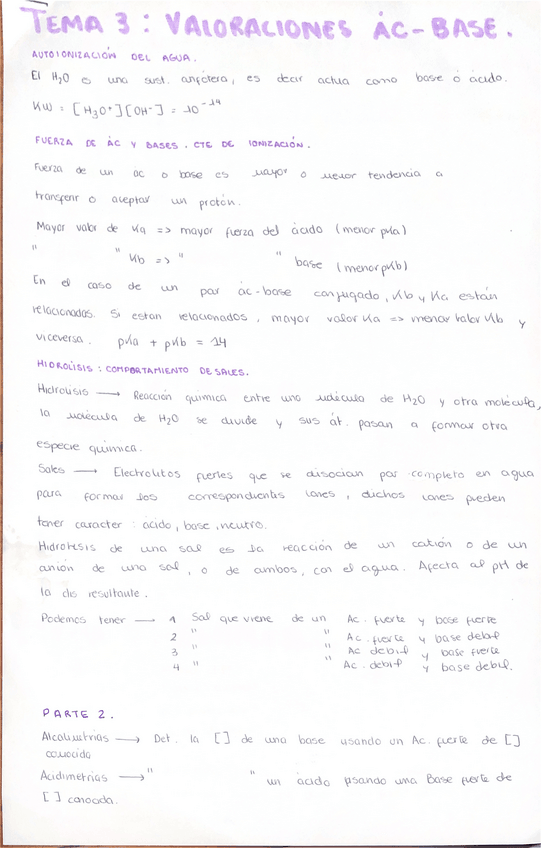 TEMA 3: VALORACIONES ÁC-BASE.
AUTOIONIZACIÓN DEL AGUA.
El H2O es una sust. anfótera, es decir actua como base o ácido.
KW = [H3O+][OH-] = 10^-14
FUERZA DE ÁC Y BASES. CTE DE IONIZACIÓN.
Fuerza de un ac o base es mayor o menor tendencia a
transferir o aceptar un protón.
Mayor valor de Ka => mayor fuerza del ácido (menor pKa)
" " Kb => " " base (menor pKb)
En el caso de un par ác-base conjugado, Kb y Ka están
relacionadas. Si estan relacionados, mayor valor Ka => menor valor Kb y
viceversa. pKa + pKb = 14
HIDROLISIS: COMPORTAMIENTO DE SALES.
Hidrolisis → Reacción química entre una molécula de H2O y otra molécula,
la molécula de H2O se divide y sus át. pasan a formar otra
especie química.
Sales → Electrolitos fuertes que se disocian por completo en agua
para formar los correspondientes iones, dichos iones pueden
tener caracter: ácido, base, neutro.
Hidrolisis de una sal es la reacción de un catión o de un
anión de una sal, o de ambos, con el agua. Afecta al pH de
la dis resultante.
Podemos tener → 1 Sal que viene de un Ac. fuerte y base fuerte
2 " " Ac. fuerte y base debil
3 " " Ac debil y base fuerte
4 " " Ac. debil y base debil.
PARTE 2.
Alcalimetrías → Det. la [] de una base usando un Ac. fuerte de []
conocida
Acidimetrias → " " un ácido usando una Base fuerte de
[] conocida.